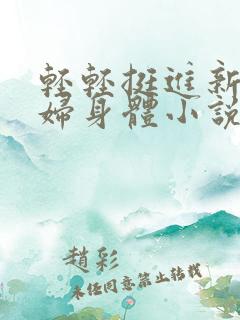 輕輕挺進新
婦身體小說
趙彩
未经同意禁止转载